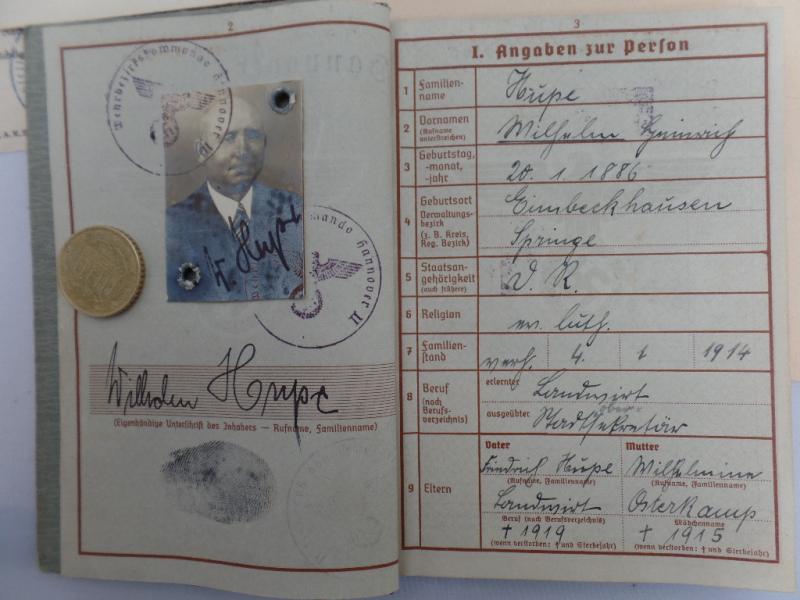 2
Wehrbezirkskommando Hannover II
W. Hupe
mando Hannover II
Wilhelm Hupe
(Eigenhändige Unterschrift des Inhabers — Rufname, Familienname)
3
I. Angaben zur Person
1 Familien-
name
Hupe
2 Vornamen
(Rufname
unterstreichen)
Wilhelm Heinrich
3 Geburtstag,
-monat,
-jahr
20. 1. 1886
4 Geburtsort
Verwaltungs-
bezirk
(z. B. Kreis,
Reg. Bezirk)
Eimbeckhausen
Springe
5 Staatsan-
gehörigkeit
(auch frühere)
D. R.
6 Religion
ev. luth.
7 Familien-
stand
verh. 4. 1 1914
8 Beruf
(nach
Berufs-
verzeichnis)
erlernter
Landwirt
ausgeübter
ober-
Stadtsekretär
9 Eltern
Vater
Friedrich Hupe
(Rufname, Familienname)
Landwirt
Beruf (nach Berufsverzeichnis)
† 1919
(wenn verstorben: † und Sterbejahr)
Mutter
Wilhelmine
(Rufname, Familienname)
Osterkamp
Mädchenname
† 1915
(wenn verstorben: † und Sterbejahr)